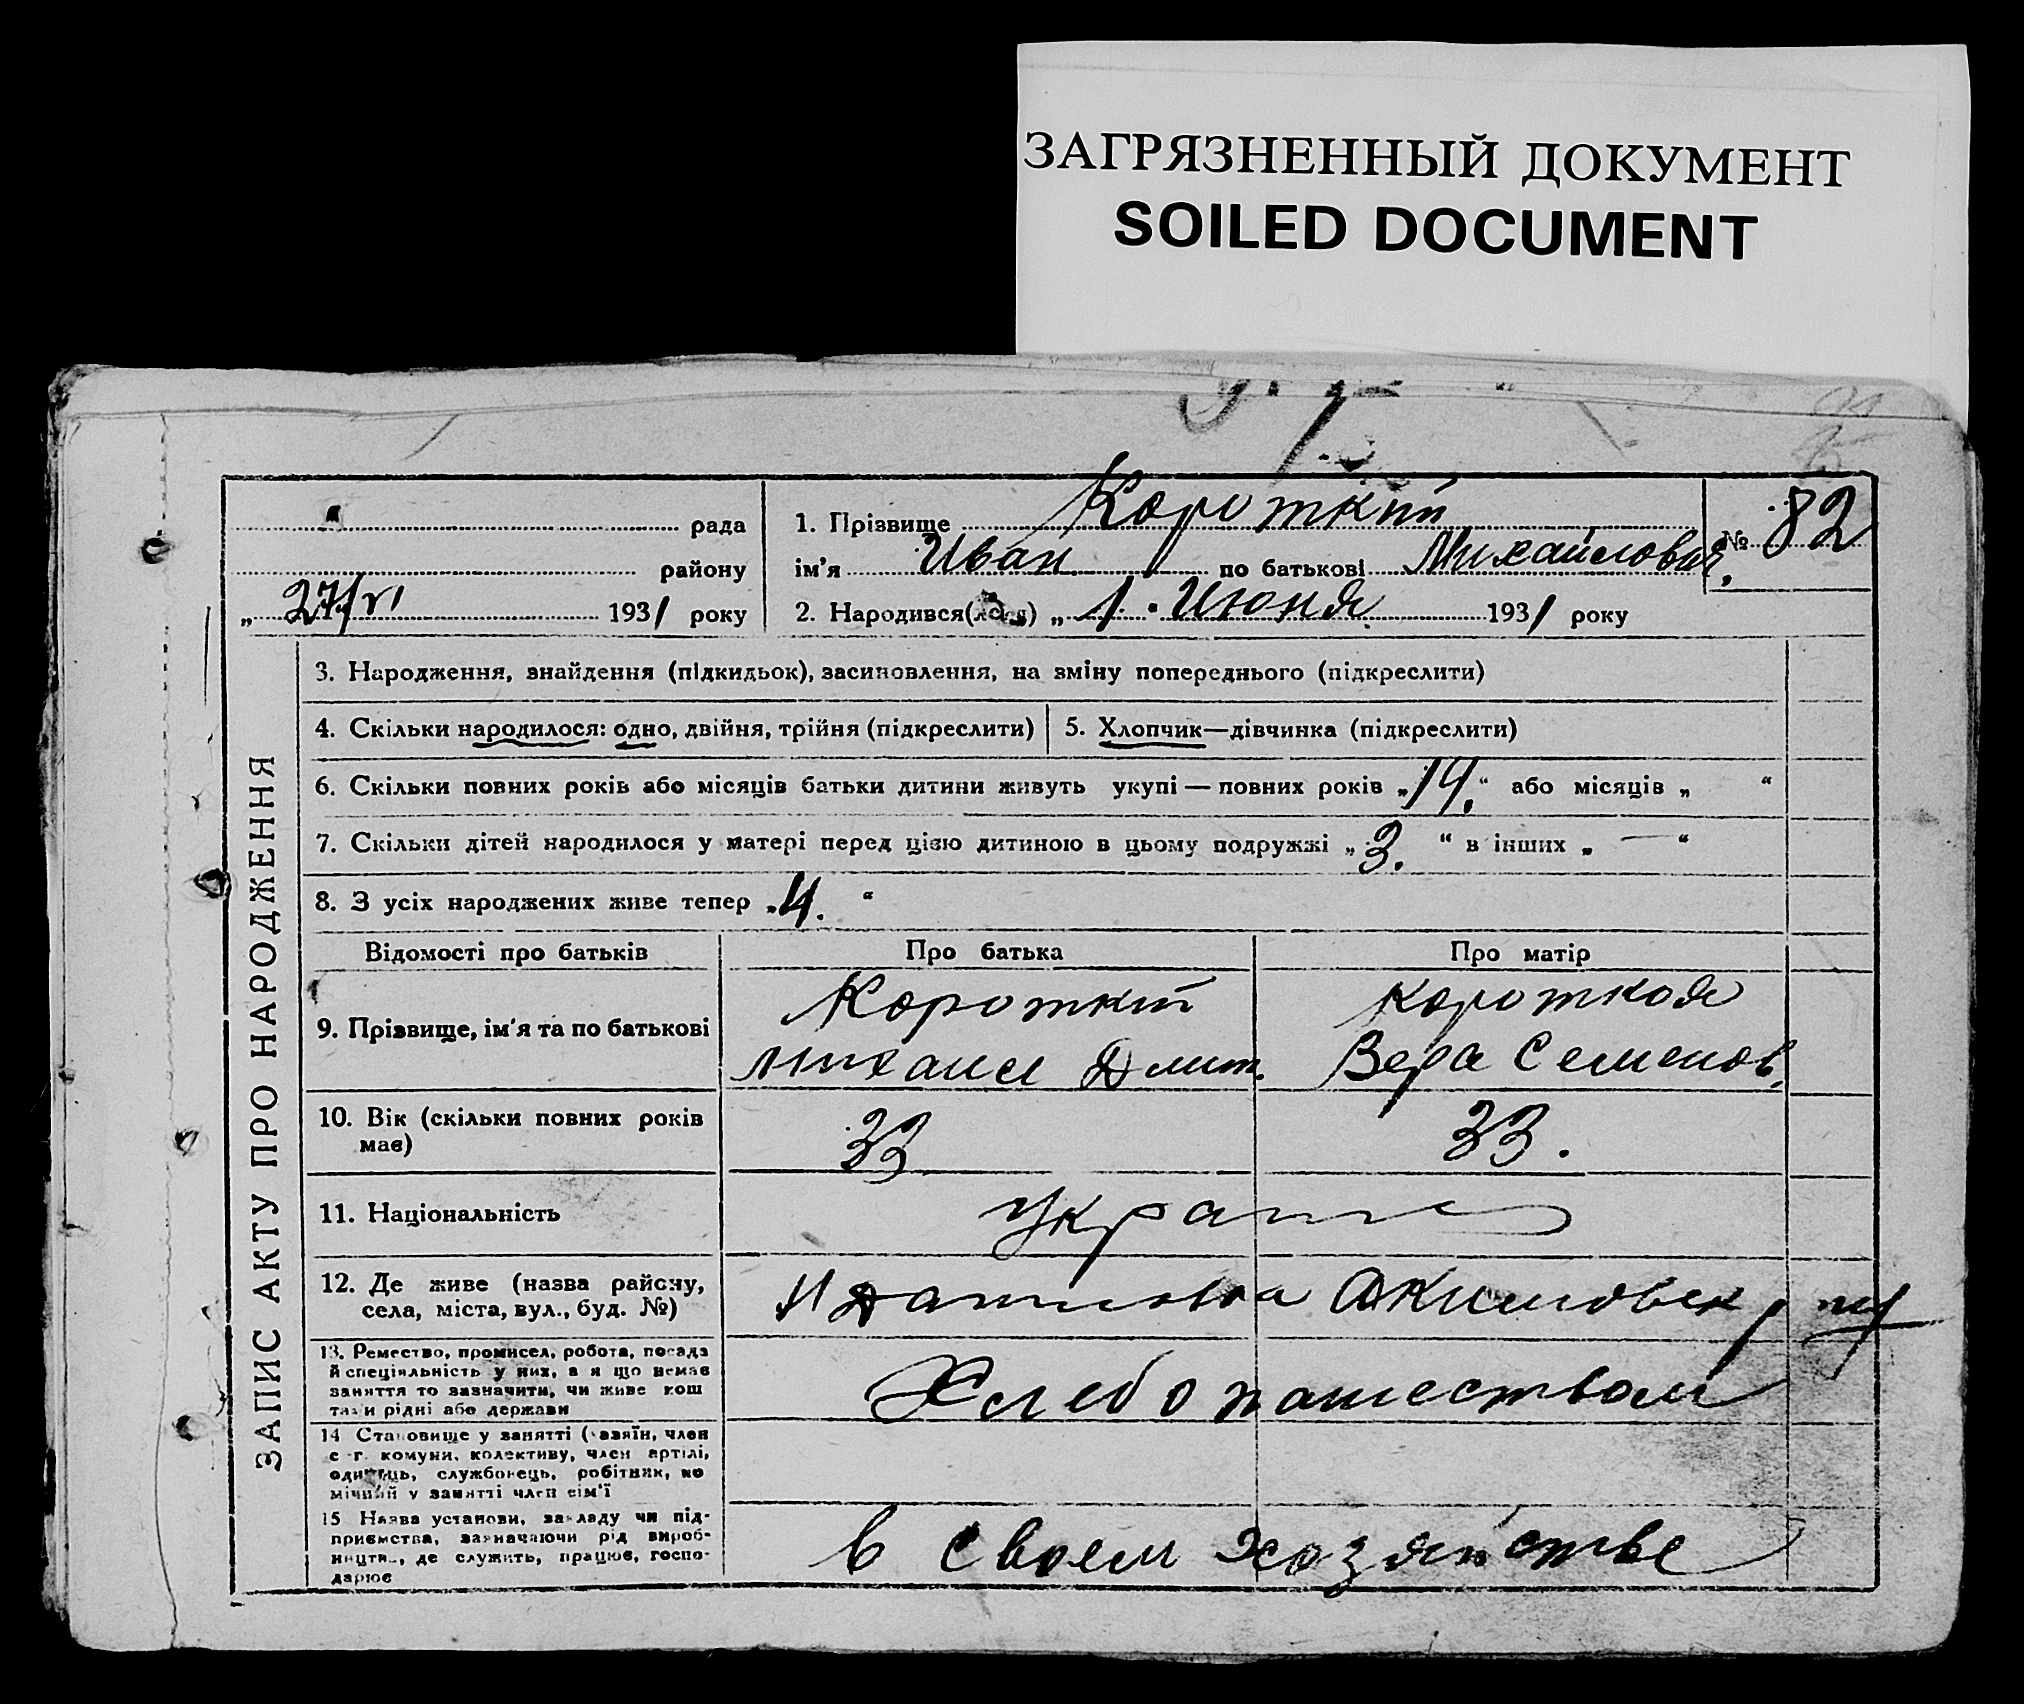 ЗАГРЯЗНЕННЫЙ ДОКУМЕНТ
SOILED DOCUMENT
рада
району
„ 27/VI 1931 року
1. Прізвище Короткий
ім'я Иван по батькові Михайлович.
2. Народився(лася) „ 1 " Июня 1931 року
№ 82
ЗАПИС АКТУ ПРО НАРОДЖЕННЯ
3. Народження, знайдення (підкидьок), засиновлення, на зміну попереднього (підкреслити)
4. Скільки народилося: одно, двійня, трійня (підкреслити)
5. Хлопчик—дівчинка (підкреслити)
6. Скільки повних років або місяців батьки дитини живуть укупі — повних років „14." або місяців „ "
7. Скільки дітей народилося у матері перед цією дитиною в цьому подружжі „3. " в інших „ — "
8. З усіх народжених живе тепер „4. "
Відомості про батьків
Про батька
Про матір
9. Прізвище, ім'я та по батькові
Короткий
Михаил Дмит.
Короткая
Вера Семенов.
10. Вік (скільки повних років
має)
33
33.
11. Національність
Украин
12. Де живе (назва району,
села, міста, вул., буд. №)
Даниловка Акимовск р
13. Ремество, промисел, робота, посада
й спеціяльність у них, а я що немає
заняття то зазначити, чи живе кош
тами рідні або держави
Хлебопашеством
14 Становище у занятті (хазяїн, член
с-г. комуни, колективу, член артілі,
одинець, службовець, робітник, по
мічний у занятті член сім'ї
15 Назва установи, закладу чи під-
приємства, зазначаючи рід вироб-
ництва, де служить, працює, госпо-
дарює
в своем хозяйстве